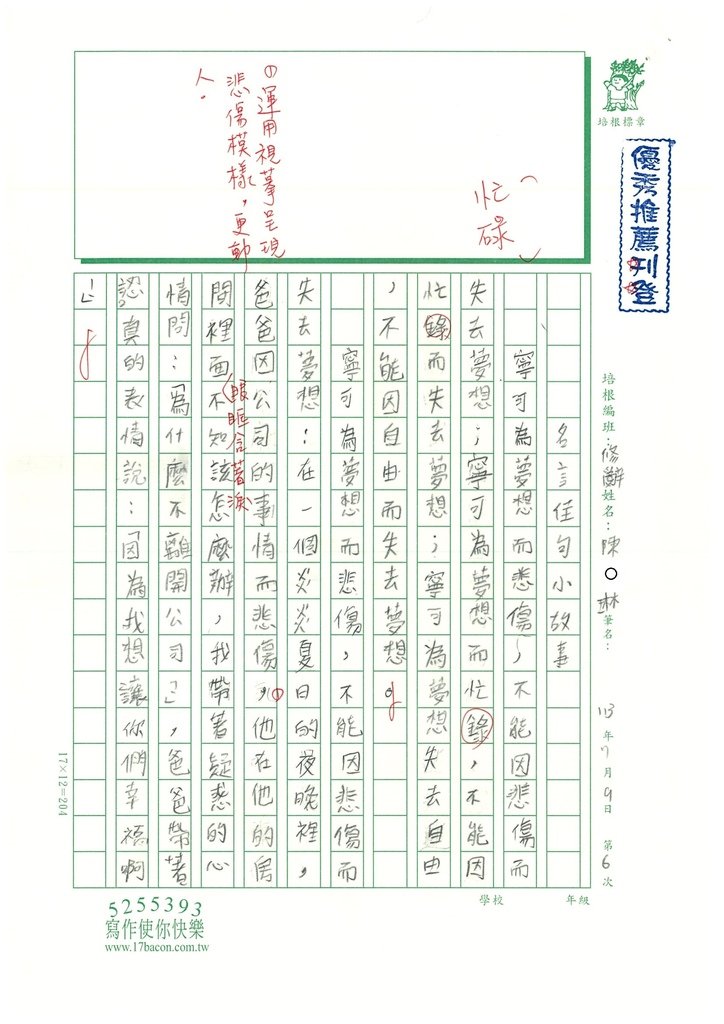 培根標章
優秀推薦刊登
培根編班：修辭 姓名：陳○琳 筆名：
113年7月9日 第6次
學校 年級
（忙碌）
①運用視摹呈現
悲傷模樣，更動
人。
名言佳句小故事
寧可為夢想而悉傷，不能因悲傷而
失去夢想；寧可為夢想而忙錄，不能因
忙錄而失去夢想；寧可為夢想失去自由
，不能因自由而失去夢想。
寧可為夢想而悲傷，不能因悲傷而
失去夢想：在一個炎炎夏日的夜晚裡，
爸爸因公司的事情而悲傷，①他在他的房
間裡面不知該怎麼辦，我帶著疑惑的心
（眼眶含著淚
情問：「為什麼不離開公司」，爸爸帶著
認真的表情說：「因為我想讓你們幸福啊
。」
17×12=204
5255393
寫作使你快樂
www.17bacon.com.tw